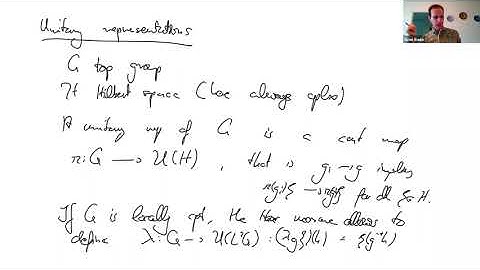 Unitary representations
G top group
H Hilbert space (over always cplx)
A unitary rep of G is a cont map
π: G → U(H), that is gᵢ → g implies
π(gᵢ)ξ → π(g)ξ for all ξ ∈ H.
If G is locally cpt, the Haar measure allows to
define λ: G → U(L²G) : (λgξ)(h) = ξ(g⁻¹h)